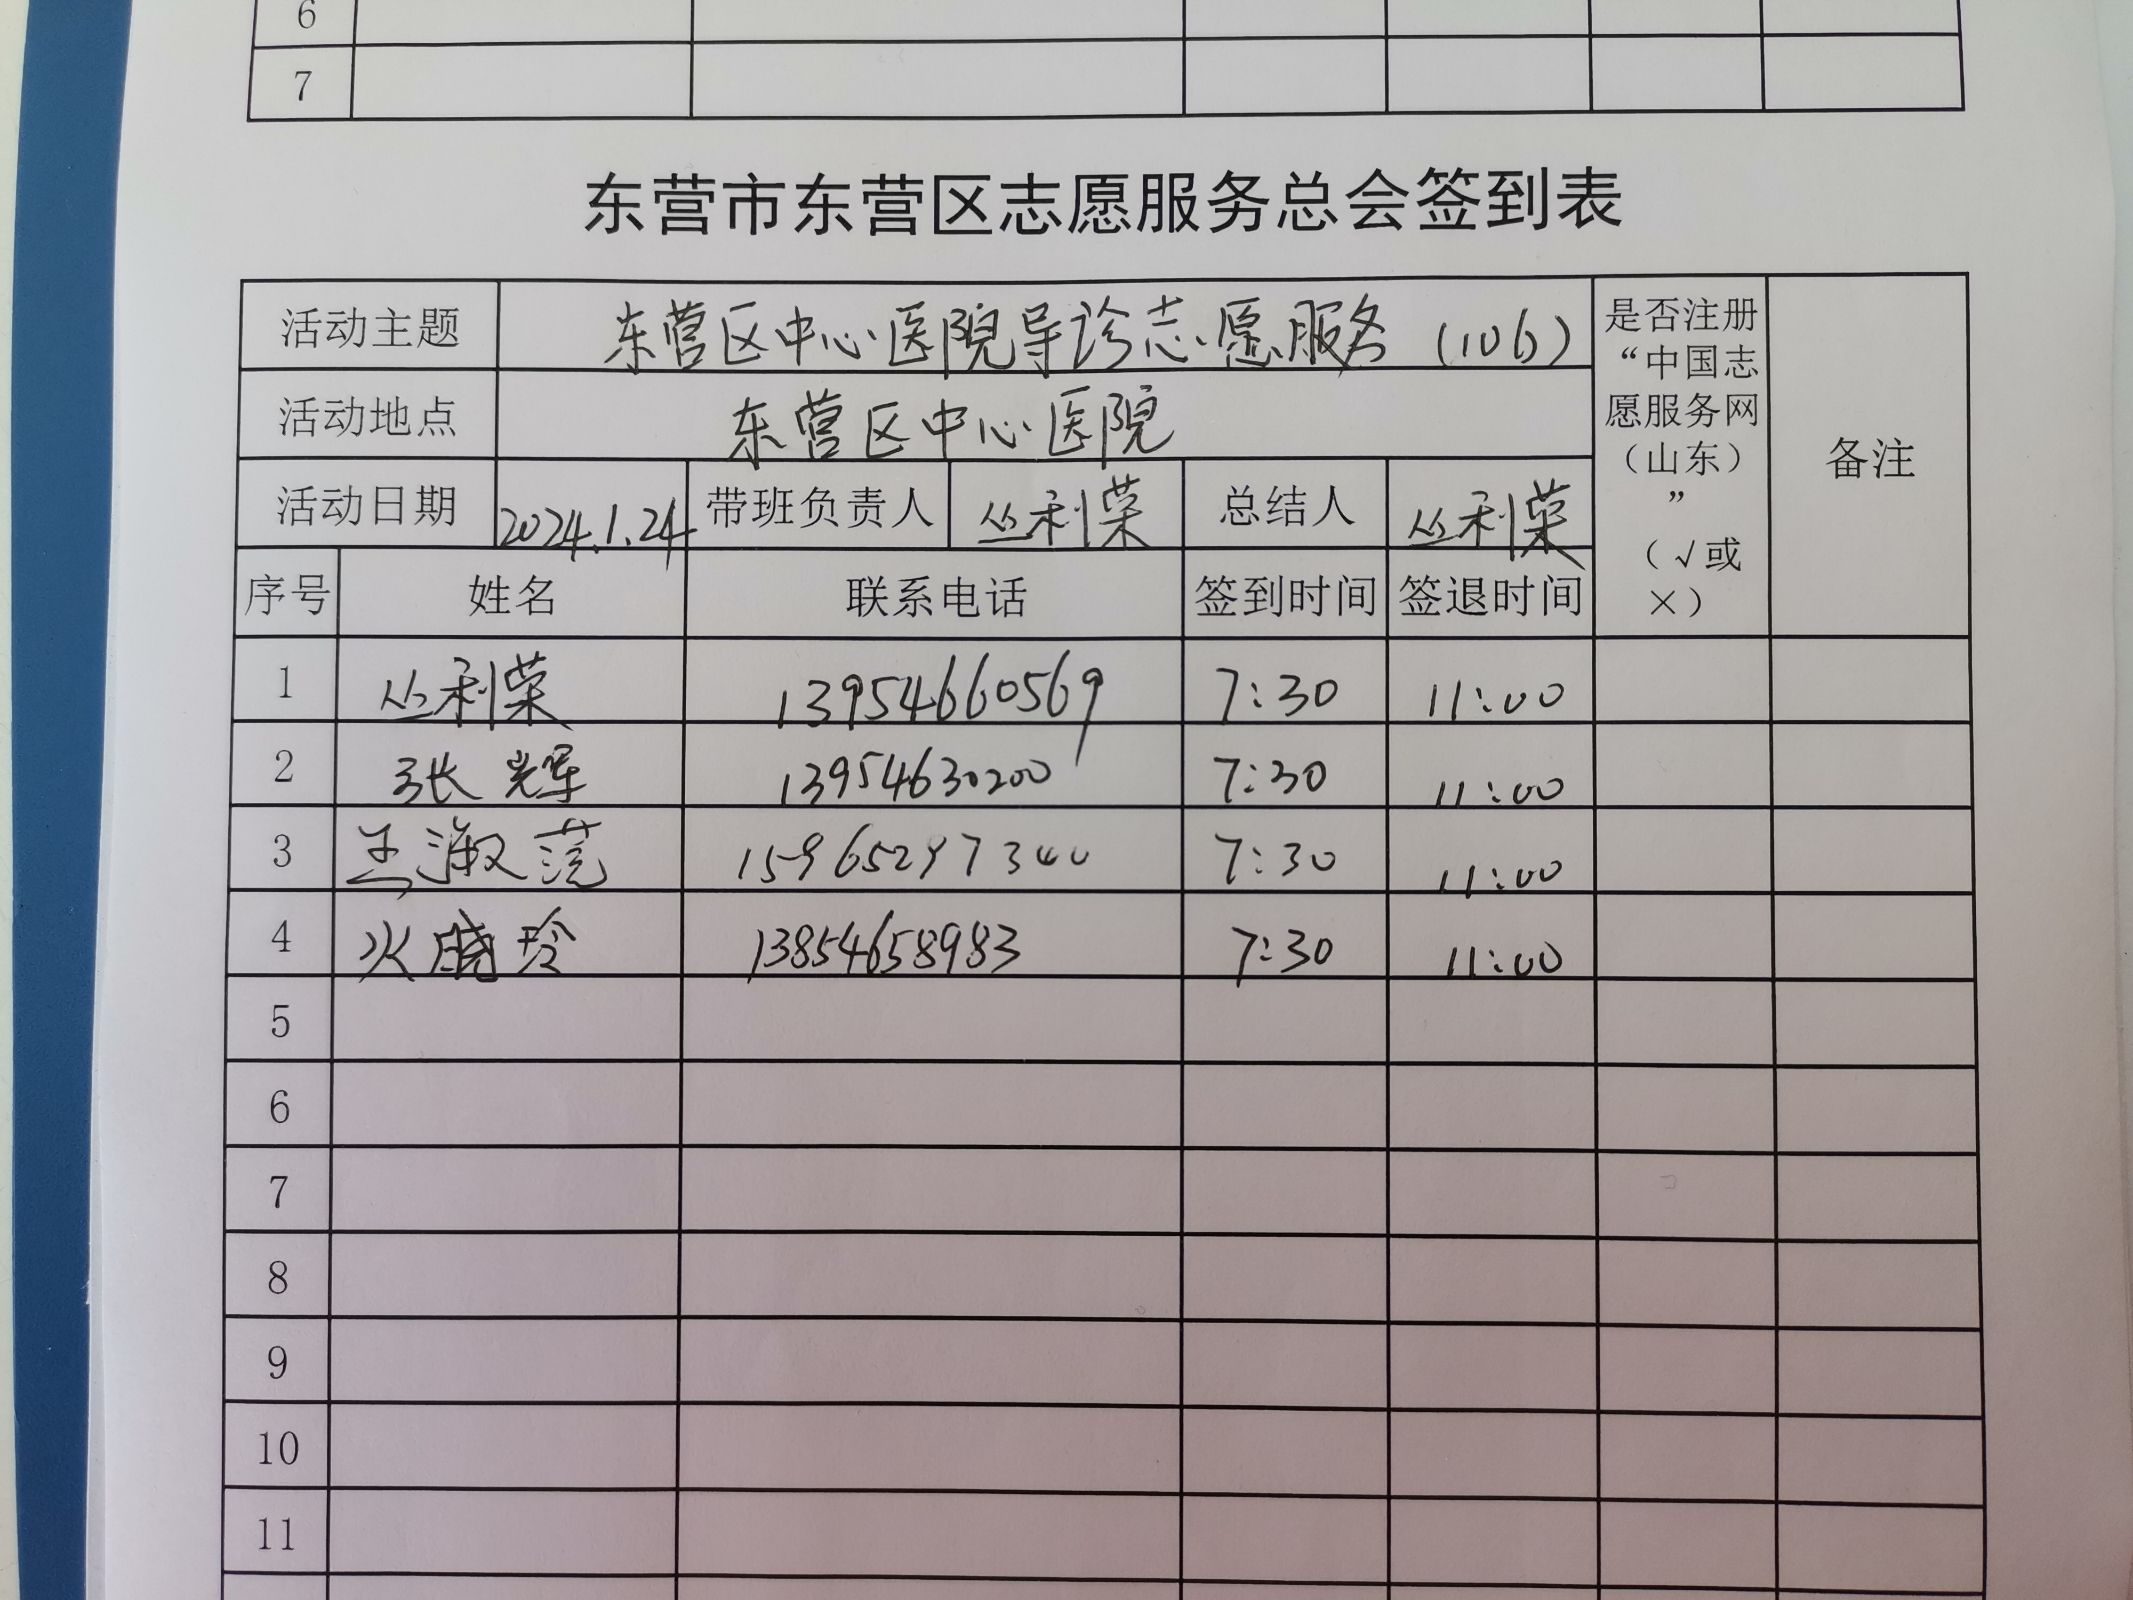 6
7
东营市东营区志愿服务总会签到表
活动主题 东营区中心医院导诊志愿服务（106） 是否注册“中国志愿服务网（山东）”（√或×） 备注
活动地点 东营区中心医院
活动日期 2024.1.24 带班负责人 丛利荣 总结人 丛利荣
序号 姓名 联系电话 签到时间 签退时间
1 丛利荣 13954660569 7:30 11:00
2 张辉 13954630200 7:30 11:00
3 王淑 15965297300 7:30 11:00
4 晓玲 13854658983 7:30 11:00
5
6
7
8
9
10
11